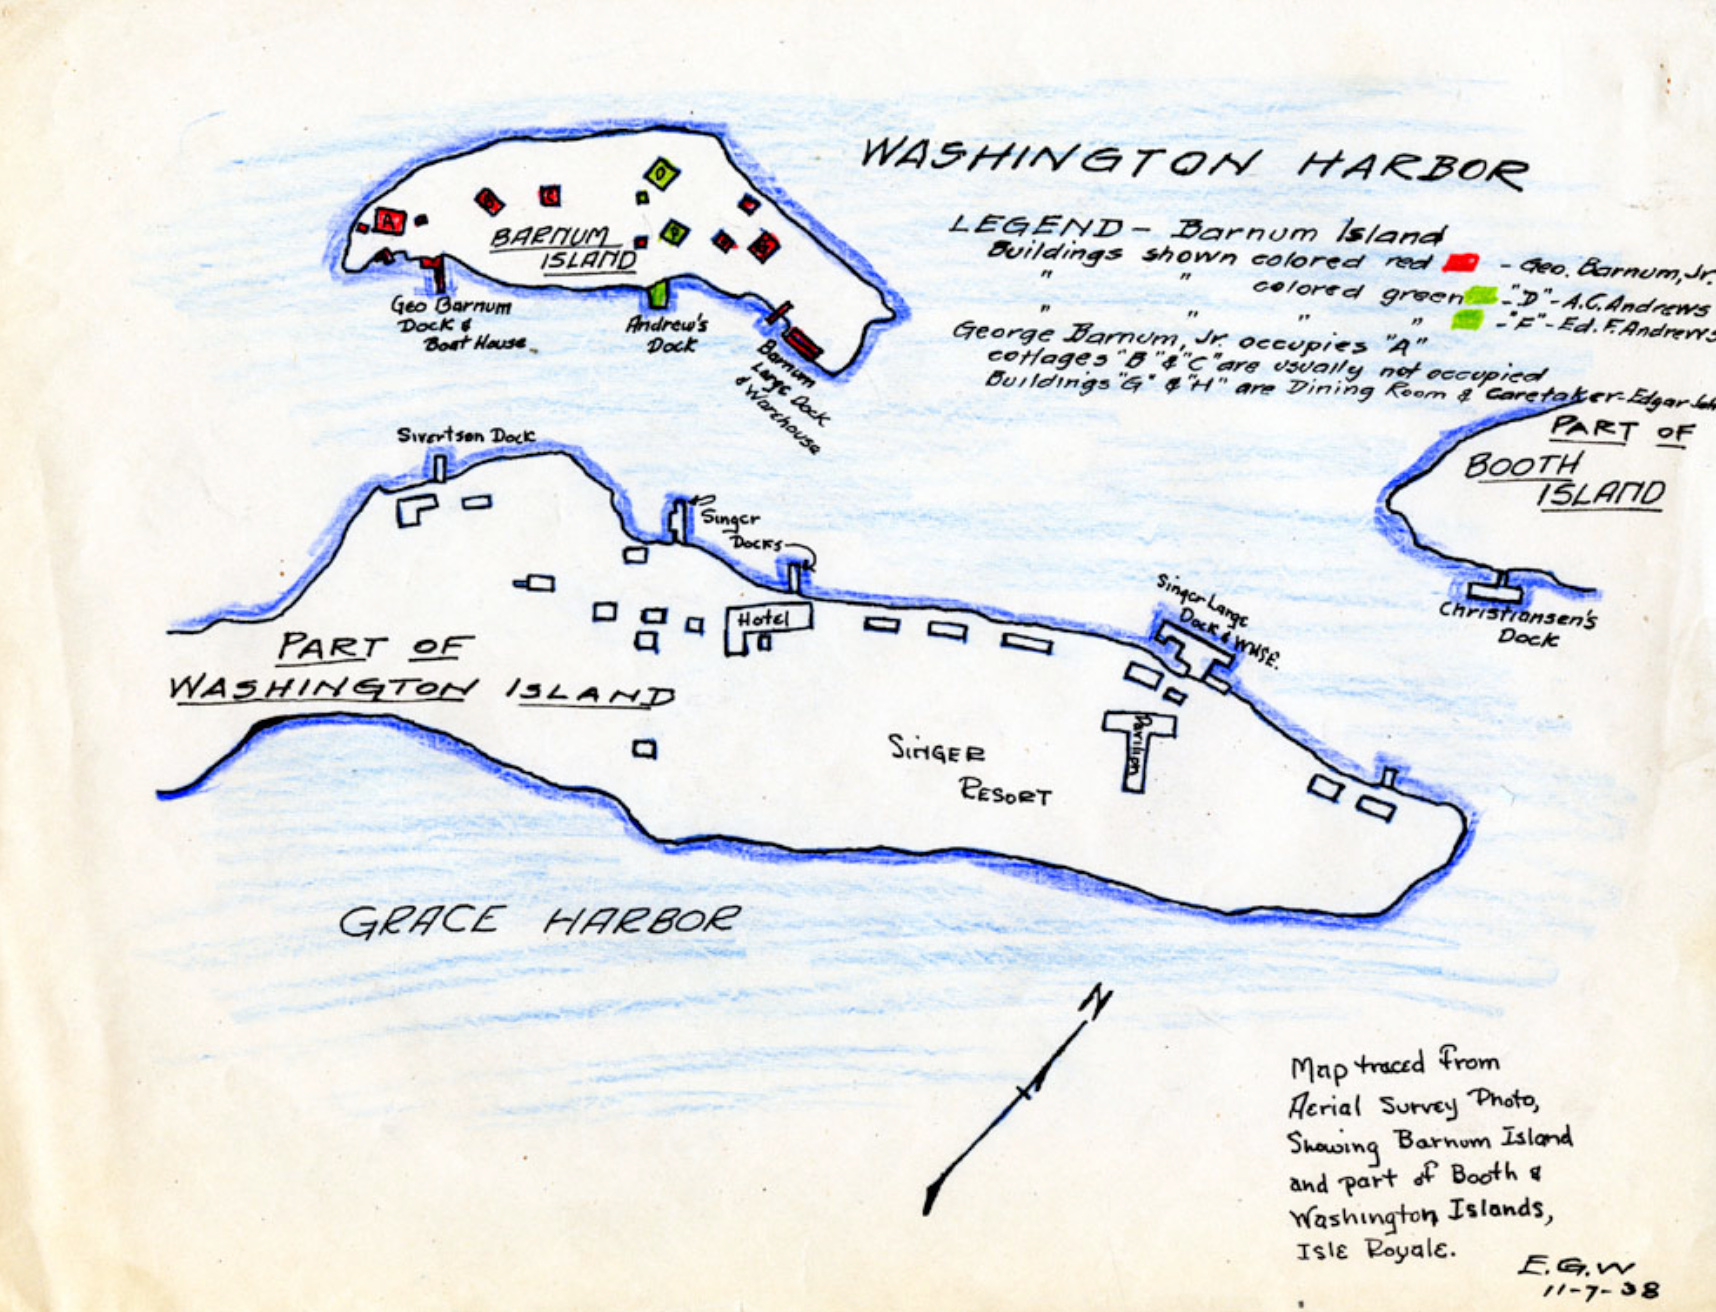 WASHINGTON HARBOR
LEGEND - Barnum Island
Buildings shown colored red - Geo. Barnum, Jr.
" " colored green - "D" - A.C. Andrews
" " " " - "F" - Ed. F. Andrews
George Barnum, Jr. occupies "A"
cottages "B" & "C" are usually not occupied
Buildings "G" & "H" are Dining Room & Caretaker - Edgar
A
C
BARNUM
ISLAND
Geo Barnum
Dock &
Boat House
Andrew's
Dock
Barnum
Large Dock
& Warehouse
PART OF
BOOTH
ISLAND
Christiansen's
Dock
Sivertson Dock
Singer
Docks
Hotel
Singer Large
Dock & WHSE.
Pavilion
PART OF
WASHINGTON ISLAND
SINGER
RESORT
GRACE HARBOR
N
Map traced from
Aerial Survey Photo,
Showing Barnum Island
and part of Booth &
Washington Islands,
Isle Royale.
E.G.W
11-7-38